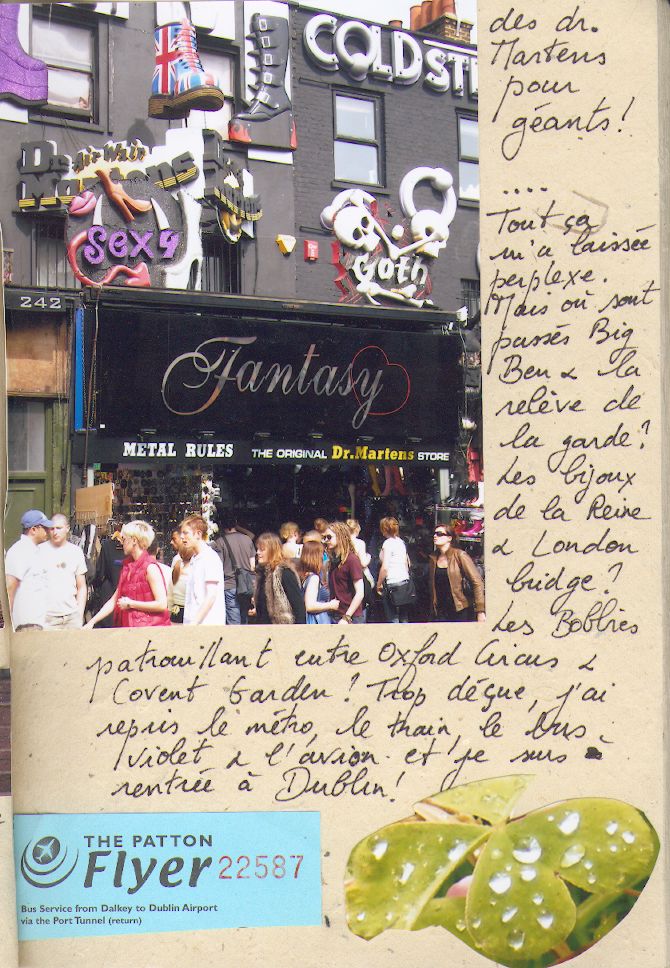 des dr.
Martens
pour
géants!
....
Tout ça
m'a laissée
perplexe.
Mais où sont
passés Big
Ben & la
relève de
la garde?
Les bijoux
de la Reine
& London
bridge?
Les Bobbies
patrouillant entre Oxford Circus &
Covent Garden? Trop déçue, j'ai
repris le métro, le train, le bus
violet & l'avion et je suis
rentrée à Dublin!
COLDSTE
Dr. Air Wair
Martens
Sexy
Goth
242
Fantasy
METAL RULES THE ORIGINAL Dr.Martens STORE
THE PATTON
Flyer 22587
Bus Service from Dalkey to Dublin Airport
via the Port Tunnel (return)